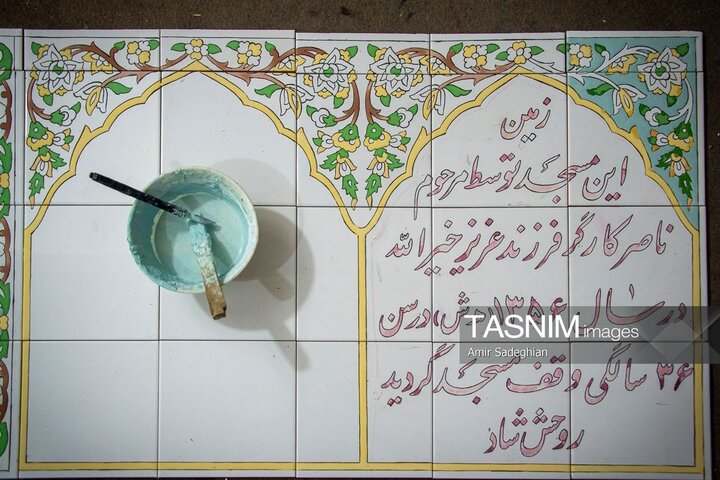 زمین
این مسجد توسط مرحوم
ناصر کارگر فرزند عزیز خیرالله
در سال ۱۳۵۶ (ه ش) در سن
۳۶ سالگی وقف مسجد گردید
روحش شاد
TASNIMimages
Amir Sadeghian